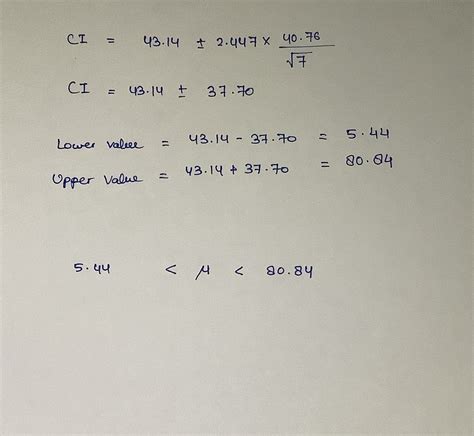 CI = 43.14 ± 2.447 × 40.76 / √7
CI = 43.14 ± 37.70
Lower value = 43.14 - 37.70 = 5.44
Upper Value = 43.14 + 37.70 = 80.84
5.44 < μ < 80.84